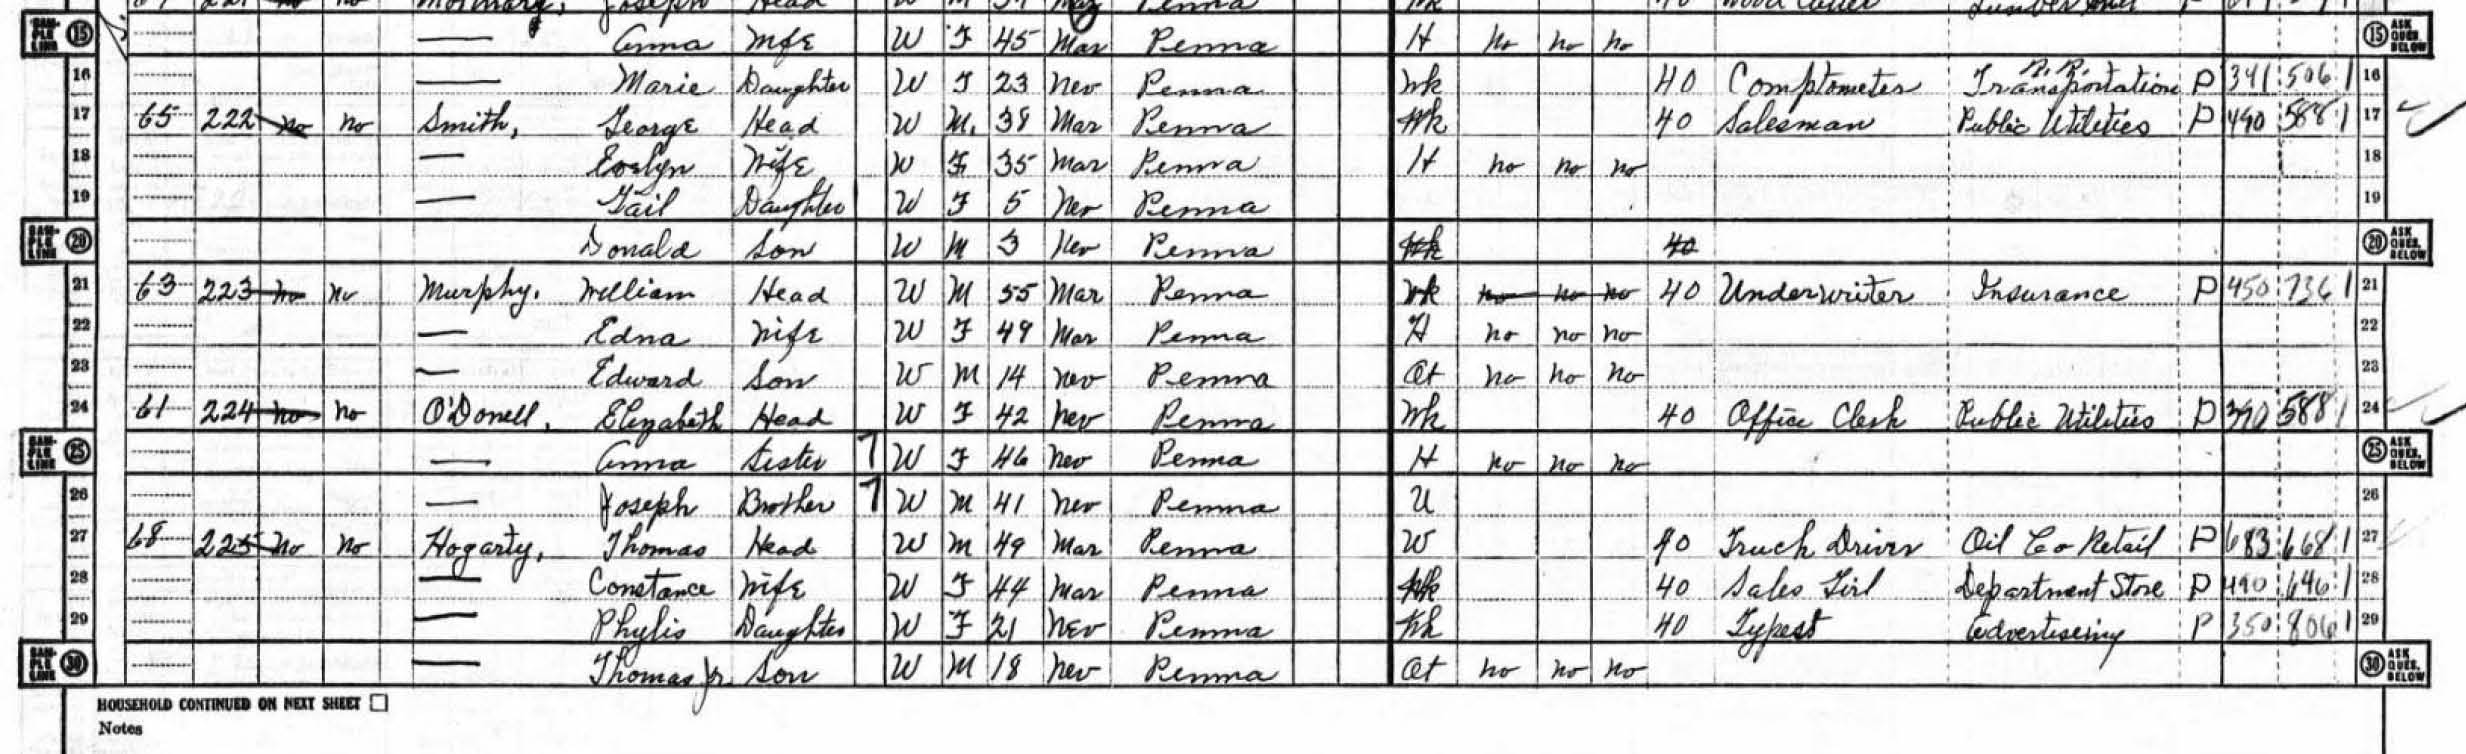 Joseph Head W M Mar Penna Wk 40 Wood P
SAMPLE LINE 15 — Anna Wife W F 45 Mar Penna H no no no 15 ASK QUES. BELOW
16 — Marie Daughter W F 23 Nev Penna Wk 40 Comptometer R.R. Transportation P 341 506 1 16
17 65 222 no no Smith, George Head W M. 38 Mar Penna Wk 40 Salesman Public Utilities P 490 588 1 17
18 — Evelyn Wife W F 35 Mar Penna H no no no 18
19 — Gail Daughter W F 5 Nev Penna 19
SAMPLE LINE 20 Donald Son W M 3 Nev Penna Wk 40 20 ASK QUES. BELOW
21 63 223 no no Murphy. William Head W M 55 Mar Penna Wk no no no 40 Underwriter Insurance P 450 736 1 21
22 — Edna Wife W F 49 Mar Penna H no no no 22
23 — Edward Son W M 14 Nev Penna Ot no no no 23
24 61 224 no no O'Donell, Elizabeth Head W F 42 Nev Penna Wk 40 Office Clerk Public Utilities P 390 588 1 24
SAMPLE LINE 25 — Anna Sister 7 W F 46 Nev Penna H no no no 25 ASK QUES. BELOW
26 — Joseph Brother 7 W M 41 Nev Penna U 26
27 68 225 no no Hogarty, Thomas Head W M 49 Mar Penna W 40 Truck Driver Oil Co Retail P 683 668 1 27
28 — Constance Wife W F 44 Mar Penna Wk 40 Sales Girl Department Store P 490 646 1 28
29 — Phylis Daughter W F 21 Nev Penna Wk 40 Typest Advertiseing P 350 806 1 29
SAMPLE LINE 30 — Thomas Jr. Son W M 18 Nev Penna Ot no no no 30 ASK QUES. BELOW
HOUSEHOLD CONTINUED ON NEXT SHEET
Notes